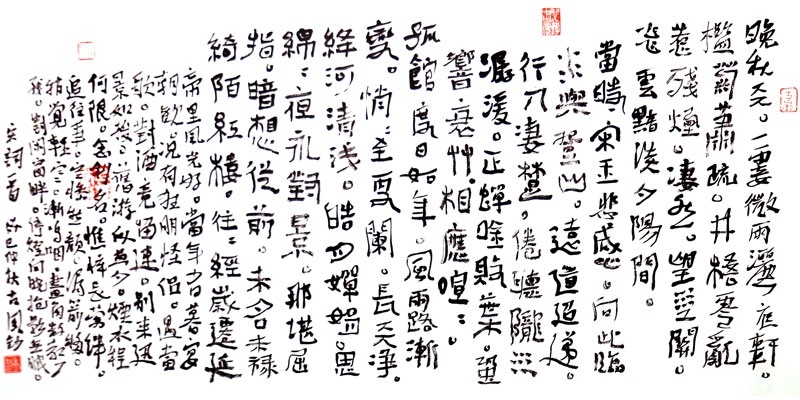 晚秋天。一霎微雨灑庭軒。
檻菊蕭疏。井梧零亂
惹殘煙。淒然。望江關。
飛雲黯淡夕陽間。
當時宋玉悲感。向此臨
水與登山。遠道迢遞。
行人淒楚。倦聽隴水
潺湲。正蟬吟敗葉。蛩
響衰草。相應喧:。
孤館度日如年。風露漸
變。悄:至更闌。長天淨。
絳河清淺。皓月嬋娟。思
綿:。夜永對景。那堪屈
指。暗想從前。未名未祿
綺陌紅樓。往:經歲遷延
帝里風光好。當年少日暮宴
朝歡。況有狂朋怪侶。遇當
歌。對酒竟留連。別來迅
景如梭。舊游似夢。煙水程
何限。念利名。憔悴長縈絆。
追往事。空慘愁顏。漏箭移。
稍覺輕寒。漸嗚咽。畫角數聲
殘。對閑窗畔。停燈向曉抱影無眠。
宋詞一首 仲秋